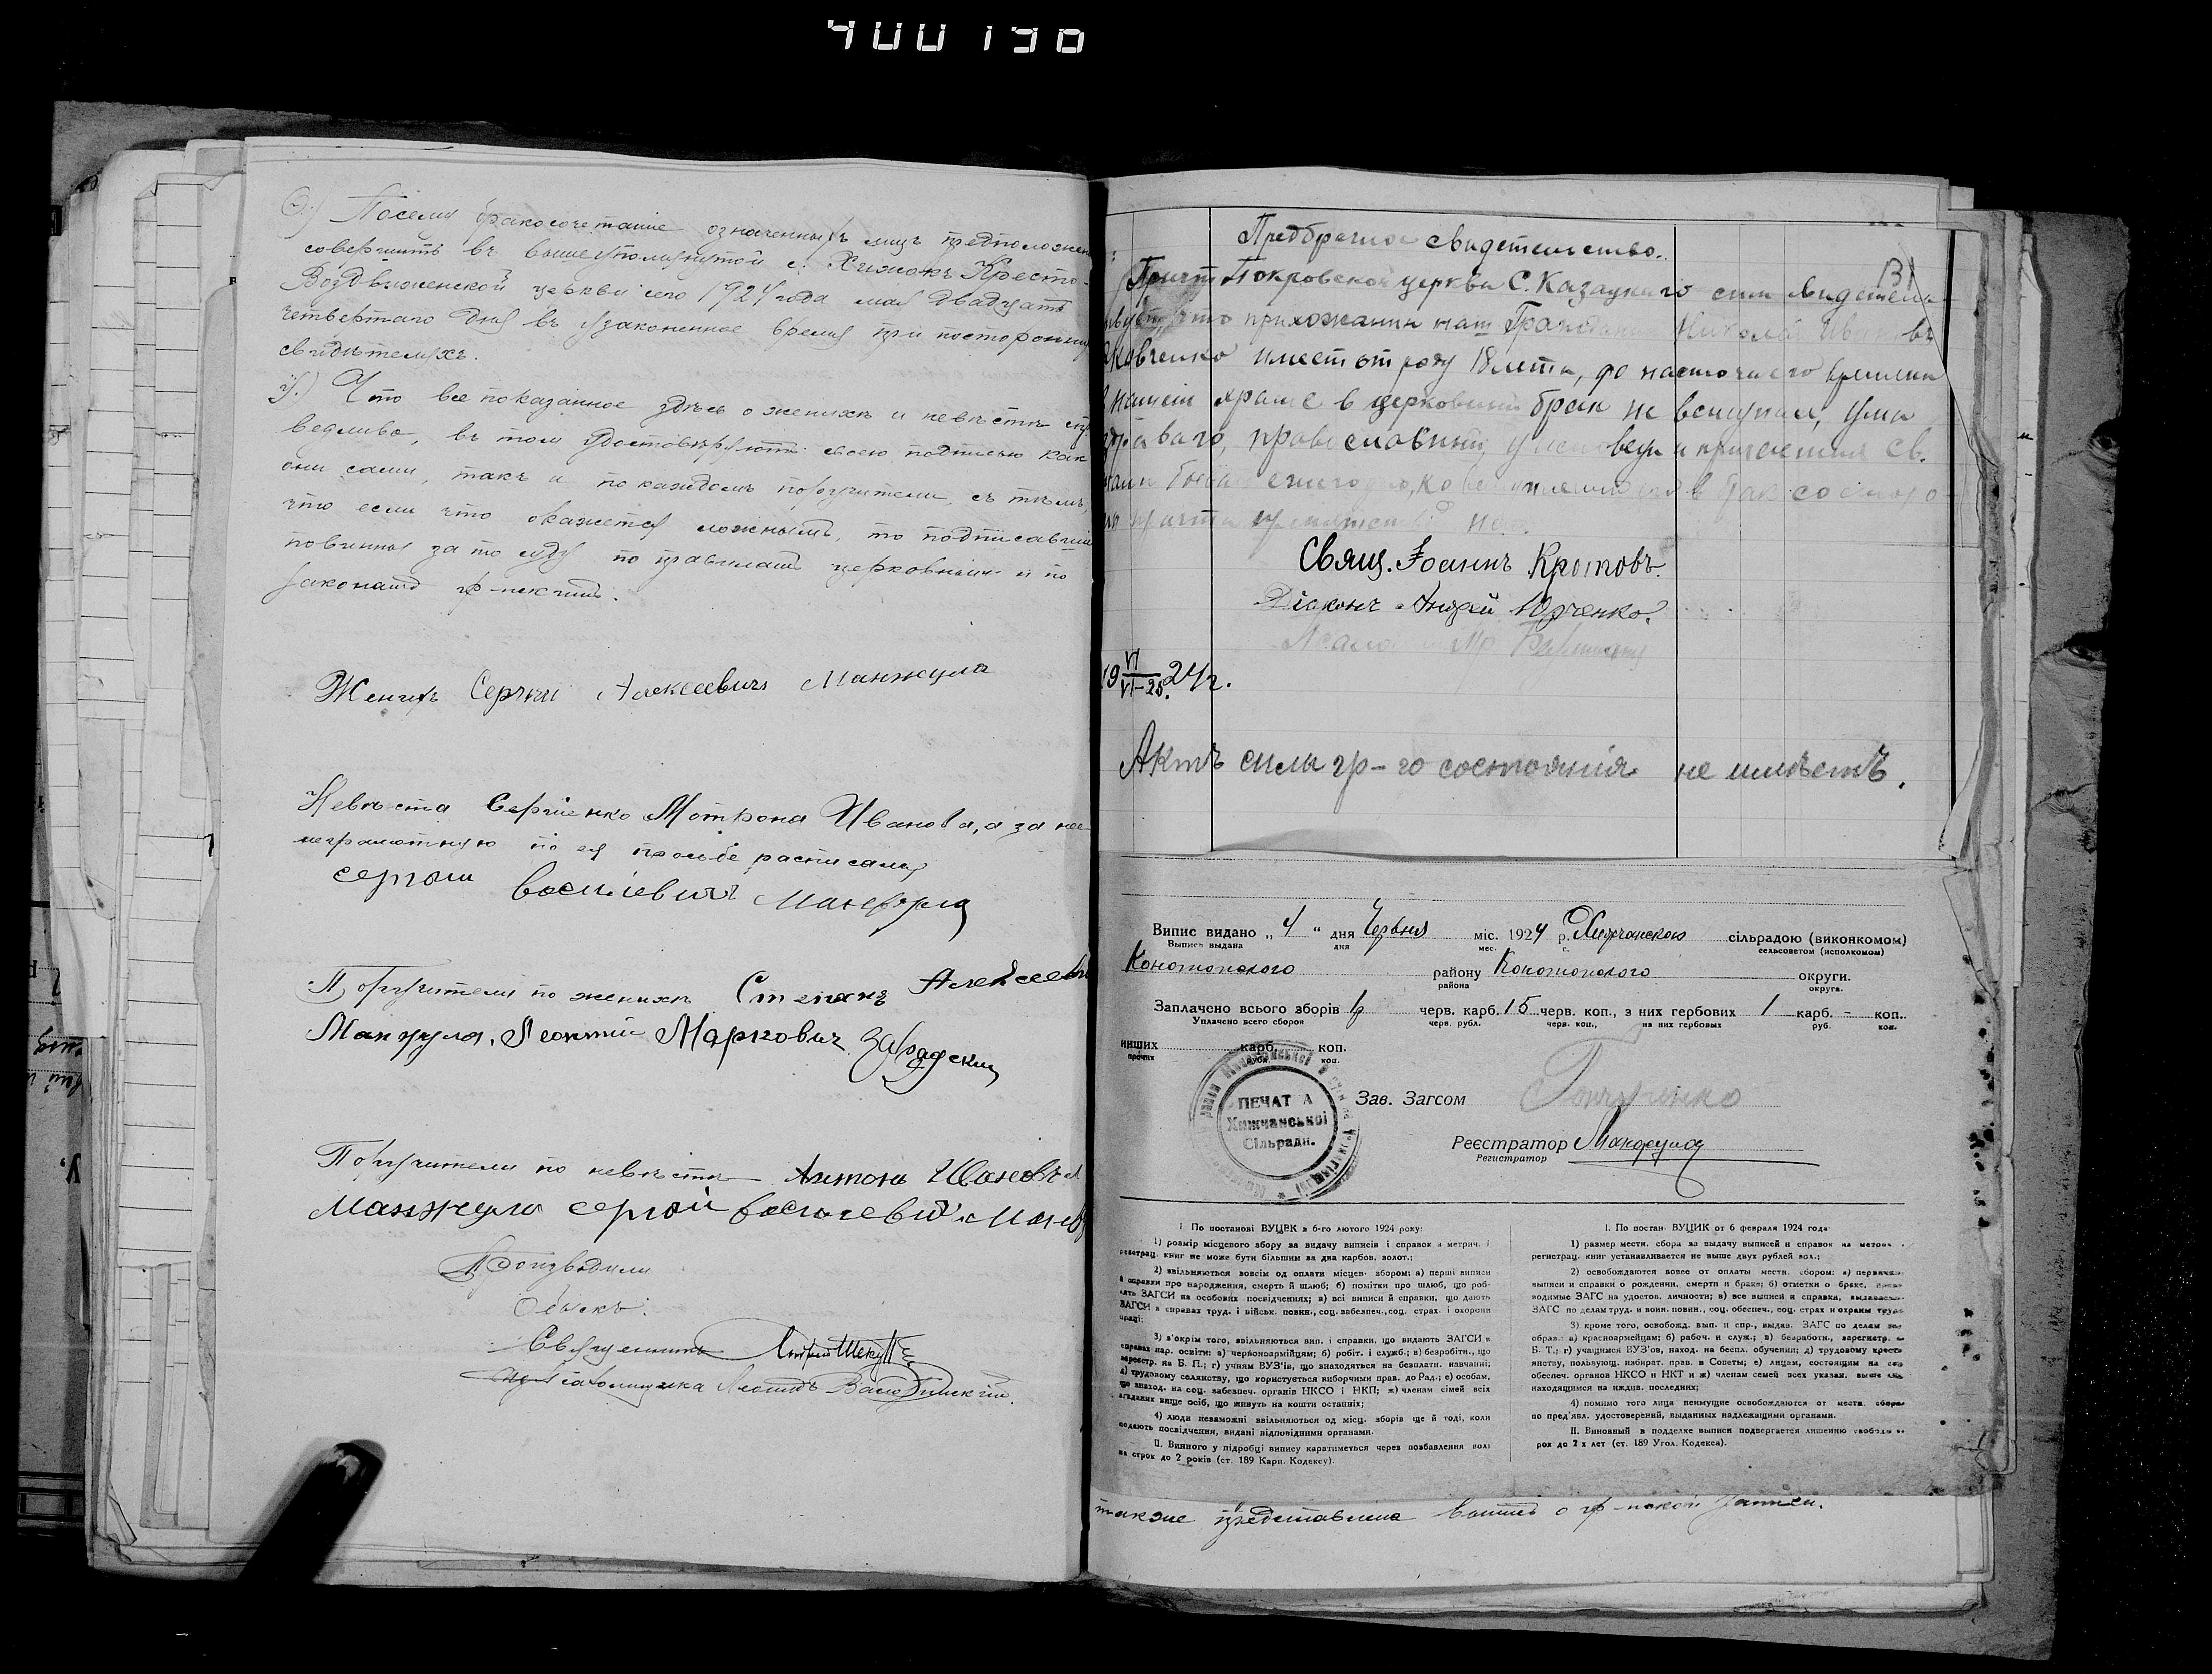 400190
6.) Посему бракосочетаніе означенныхъ лицъ предположено
совершить въ вышеупомянутой с. Хижокъ Кресто-
Воздвиженской церкви сего 1924 года мая двадцать
четвертаго дня въ узаконенное время при посторонних
свидѣтеляхъ.
7.) Что все показанное здѣсь о женихѣ и невѣстѣ спра
ведливо, въ том удостовѣряютъ своею подписью как
они сами, такъ и по каждомъ поручители, съ тѣмъ,
что если что окажется ложнымъ, то подписавшіе
повинны за то суду по правиламъ церковнымъ и по
законамъ гр-нскимъ.
Женихъ Сергѣй Алексеевичъ Манжула
Невѣста Сергіенко Мотрона Иванова, а за нее
неграмотную по ея просьбе расписался
сергѣи Василіевичъ Манжула
Поручители по женихѣ Степанъ Алексеев
Манжула, Леонтій Маркович
Поручители по невѣстѣ Антонъ
Манжула сергѣй Василевич Манж
Производили
Обыскъ:
Священникъ
Псаломщика Леонидъ
Предбрачное свидетельство.
131
Причт Покровской церкви С. Казацкаго сим свидетель-
что прихожанин наш Гражданин Николай
имеет от роду 18 летъ, до настоящего времени
нашем храме в церковный брак не вступал, ума
здраваго, православный, у исповеди и причастия Св.
ежегодно, ко
причта препятствий
Свящ. Іоаннъ Кротовъ.
Діаконъ Андрей Юрченко.
19 VI/VI-25 24 г.
Актъ силы гр-го состоянія не имѣетъ.
Випис видано „ 4 “ дня Червня міс. 1924 р. Хижчанскою сільрадою (виконкомом)
Выпись выдана дня мес. г. сельсоветом (исполкомом)
Конотопского району Конотопского округи.
района округа.
Заплачено всього зборів черв. карб. 15 черв. коп., з них гербових 1 карб. - коп.
Уплачено всего сборов черв. рубл. черв. коп., из них гербовых руб. коп.
инших карб. коп.
прочих рубл. коп.
ПЕЧАТКА
Хижчанської
Сільради.
Зав. Загсом Гончаренко
Реєстратор Манжула
Регистратор
I. По постанові ВУЦВК в 6-го лютого 1924 року:
1) розмір місцевого збору за видачу виписів і справок з метрич. і
реєстрац. книг не може бути більшим за два карбов. золот.;
2) звільняються зовсім од оплати місцев. збором: а) перші виписи
й справки про народження, смерть й шлюб; б) помітки про шлюб, що роб-
лять ЗАГСИ на особових посвідченнях; в) всі виписи й справки, що дають
ЗАГСИ в справах труд. і військ. повин., соц. забезпеч., соц. страх. і охорони
праці;
3) з'окрім того, звільняються вип. і справки, що видають ЗАГСИ в
справах нар. освіти: а) червоноармійцям; б) робіт. і служб.; в) безробітн., що
зареєстр. на Б. П.; г) учням ВУЗ'ів, що знаходяться на безплатн. навчанні;
д) трудовому селянству, що користується виборчими прав. до Рад.; е) особам,
що знаход. на соц. забезпеч. органів НКСО і НКП; ж) членам сімей всіх
згаданих вище осіб, що живуть на кошти останніх;
4) люди незаможні звільняються од місц. зборів ще й тоді, коли
подають посвідчення, видані відповідними органами.
II. Винного у підробці випису каратиметься через позбавлення волі
на строк до 2 років (ст. 189 Карн. Кодексу).
I. По постан. ВУЦИК от 6 февраля 1924 года
1) размер местн. сбора за выдачу выписей и справок из метрич. и
регистрац. книг устанавливается не выше двух рублей зол.;
2) освобождаются вовсе от оплаты местн. сбором: а) первичн.
выписи и справки о рождении, смерти и браке; б) отметки о браке, произ-
водимые ЗАГС на удостов. личности; в) все выписи и справки, выдаваем.
ЗАГС по делам труд. и воин. повин., соц. обеспеч., соц. страх и охраны труда
3) кроме того, освобожд. вып. и спр., выдав. ЗАГС по делам нар.
образ.: а) красноармейцам; б) рабоч. и служ.; в) безработн., зарегистр. на
Б. Т.; г) учащимся ВУЗ'ов, наход. на беспл. обучении; д) трудовому кресть
янству, пользующ. избират. прав. в Советы; е) лицам, состоящим на соц
обеспеч. органов НКСО и НКТ и ж) членам семей всех указан. выше лиц
находящимся на иждив. последних;
4) помимо того лица неимущие освобождаются от местн. сбора
по пред'явл. удостоверений, выданных надлежащими органами.
II. Виновный в подделке выписи подвергается лишению свободы на
срок до 2 х лет (ст. 189 Угол. Кодекса).
также представлена выпись о гр-нской записи.